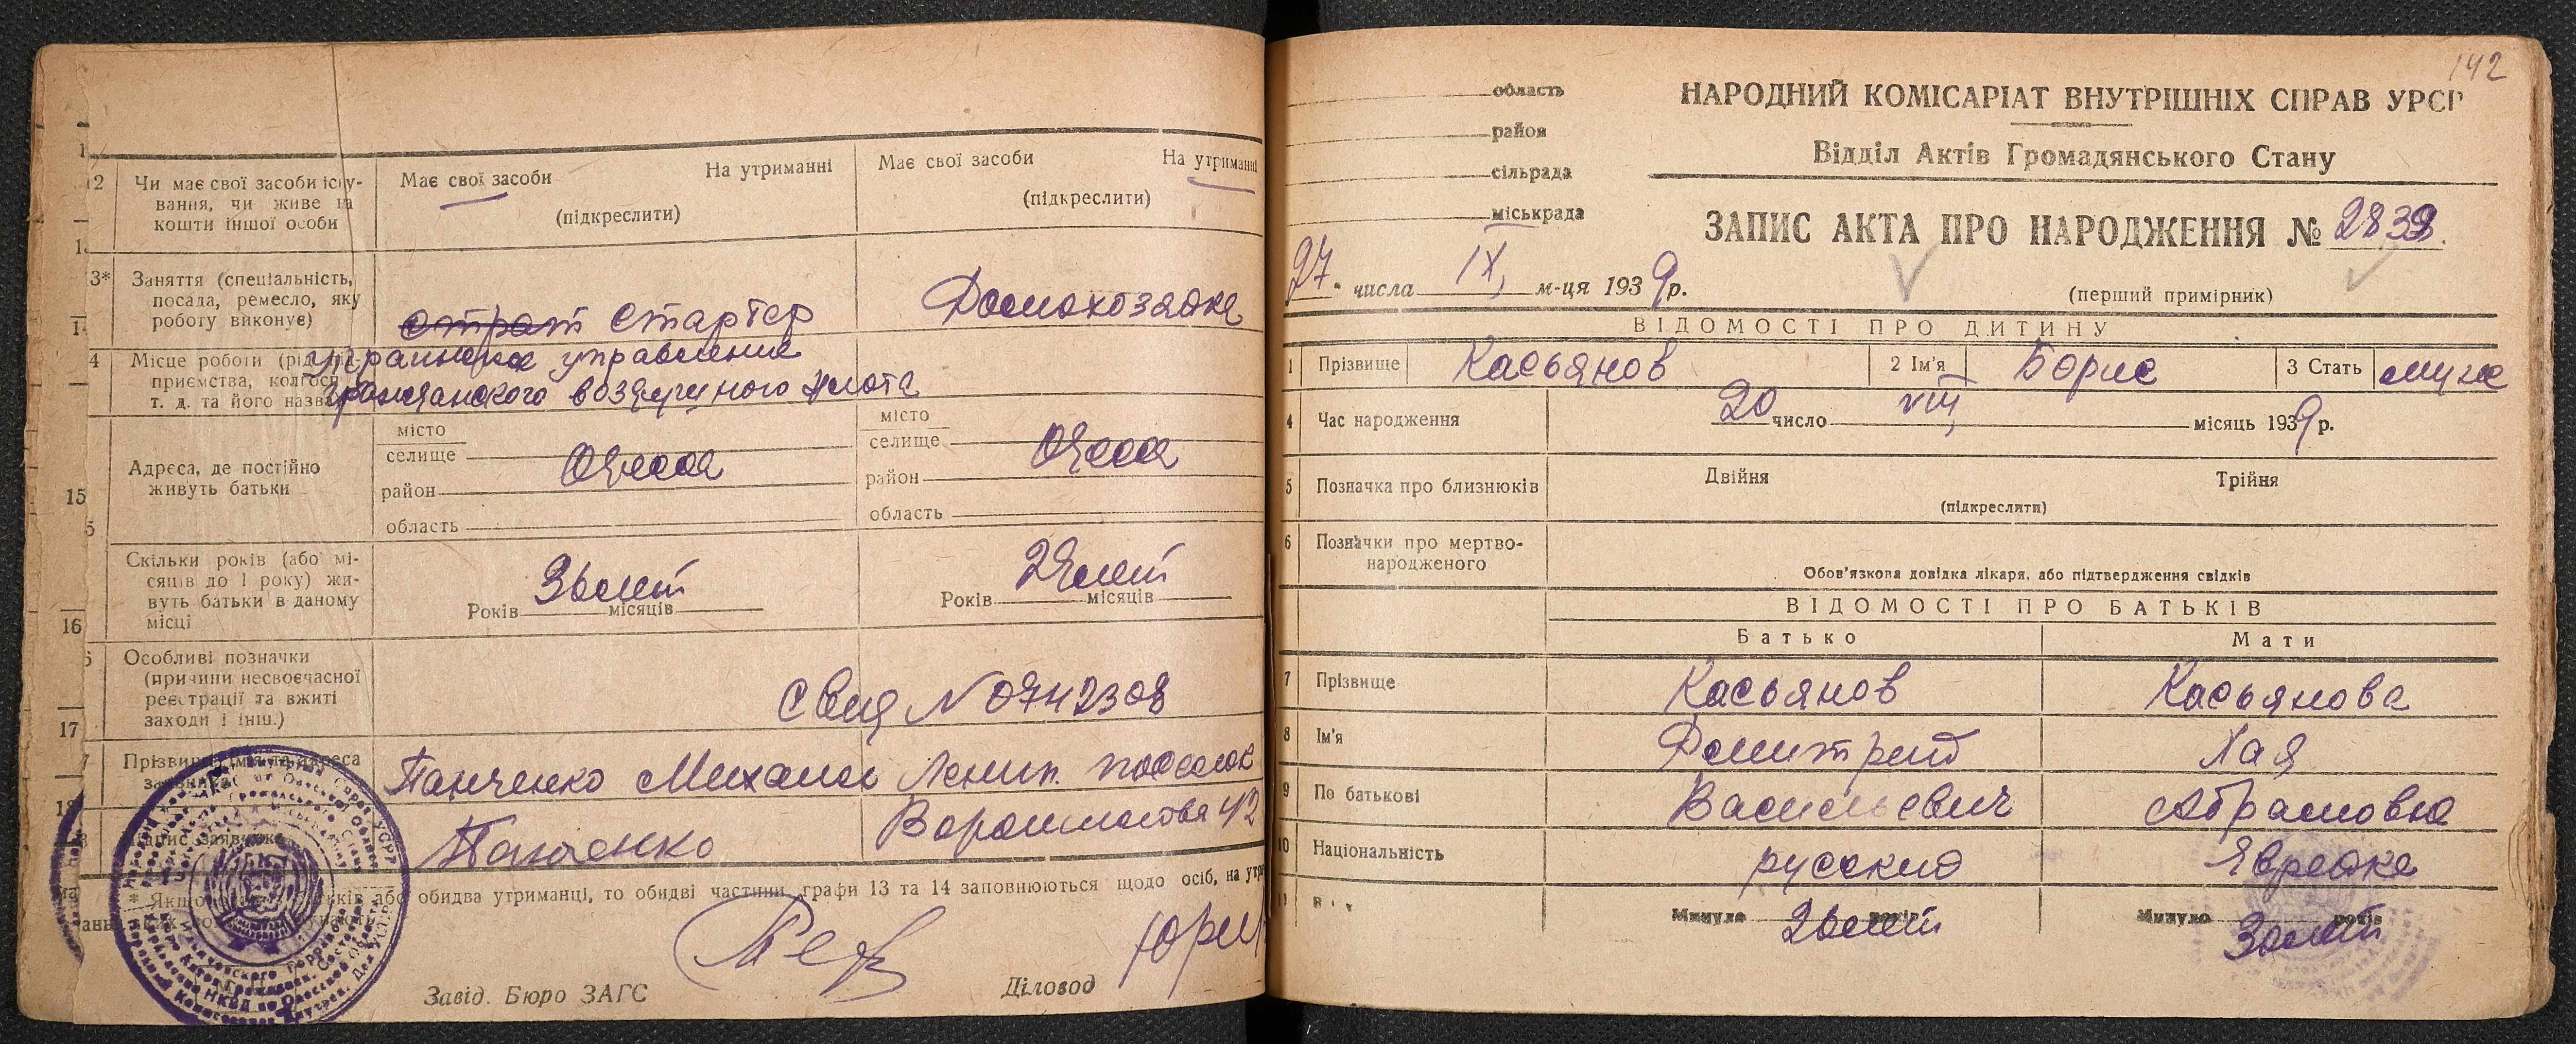 12 Чи має свої засоби існу-
вання, чи живе на
кошти іншої особи
Має свої засоби На утриманні
(підкреслити)
Має свої засоби На утриманні
(підкреслити)
3* Заняття (спеціальність,
посада, ремесло, яку
роботу виконує)
страт стартер
Домохозяйка
4 Місце роботи
приємства, колгосп
т. д. та його назва
управление
гражданского воздушного флота
Адреса, де постійно
живуть батьки
місто
селище
Одесса
район
область
місто
селище
Одесса
район
область
15
Скільки років (або мі-
сяців до 1 року) жи-
вуть батьки в даному
місці
Років місяців
Років місяців
16
Особливі позначки
(причини несвоєчасної
реєстрації та вжиті
заходи і інш.)
Свид N 0742308
17
Панченко Михаил Ленин. поселок
Ворошилова 42
Панченко
обидва утриманці, то обидві частини графи 13 та 14 заповнюються щодо осіб, на
Завід. Бюро ЗАГС
Діловод
142
область
район
сільрада
міськрада
НАРОДНИЙ КОМІСАРІАТ ВНУТРІШНІХ СПРАВ УРСР
Відділ Актів Громадянського Стану
ЗАПИС АКТА ПРО НАРОДЖЕННЯ №
27 числа IX м-ця 1939 р.
(перший примірник)
ВІДОМОСТІ ПРО ДИТИНУ
1 Прізвище Касьянов 2 Ім'я Борис 3 Стать муж
4 Час народження 20 число VIII місяць 1939 р.
5 Позначка про близнюків Двійня Трійня
(підкреслити)
6 Позначки про мертво-
народженого
Обов'язкова довідка лікаря, або підтвердження свідків
ВІДОМОСТІ ПРО БАТЬКІВ
Батько Мати
7 Прізвище Касьянов Касьянова
8 Ім'я Дмитрий Хая
9 По батькові Васильевич Абрамовна
10 Національність русский Еврейка
11
Минуло років
Минуло років